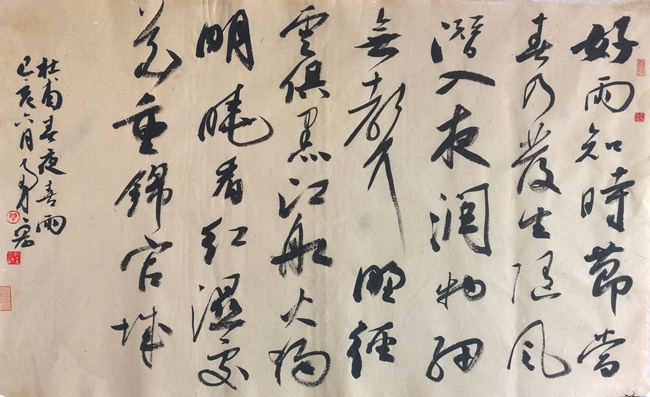 好雨知時節當
春乃發生隨風
潛入夜潤物細
無聲野徑
雲俱黑江船火獨
明曉看紅濕處
花重錦官城
杜甫春夜喜雨
己亥六月